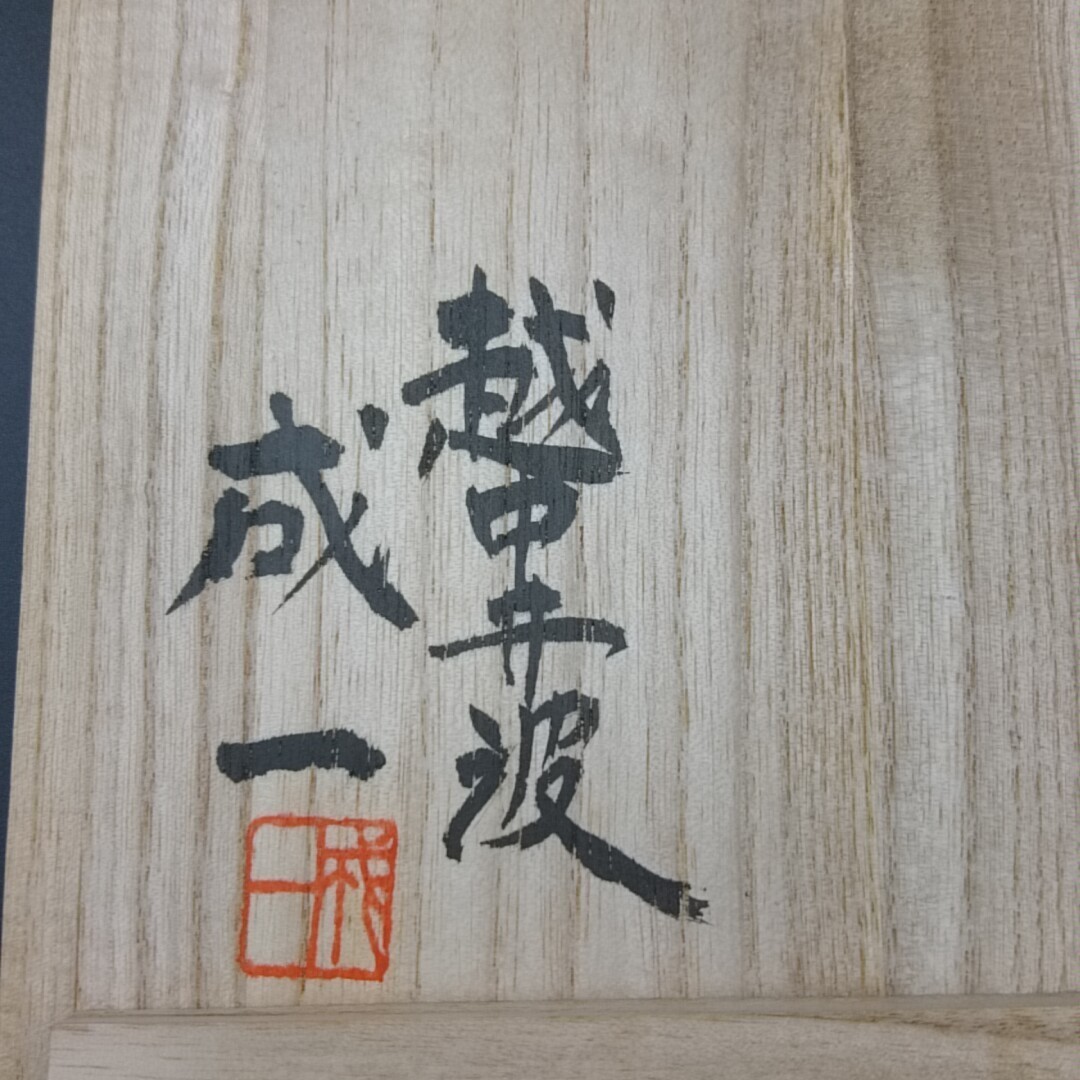 越中井波
成一
成一